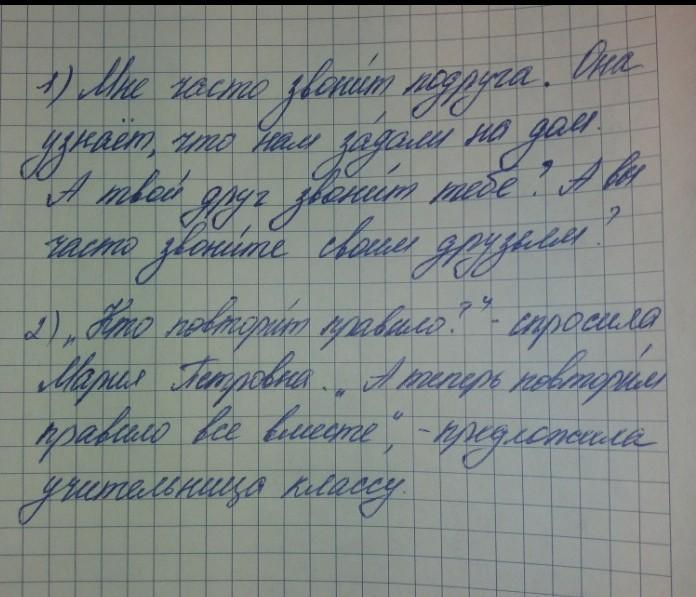 1) Мне часто звони́т подруга. Она
узнаёт, что нам за́дали на дом.
А твой друг звони́т тебе? А вы
часто звони́те своим друзьям?
2) „Кто повтори́т правило?“ - спросила
Мария Петровна. „А теперь повтори́м
правило все вместе“, - предложила
учительница классу.